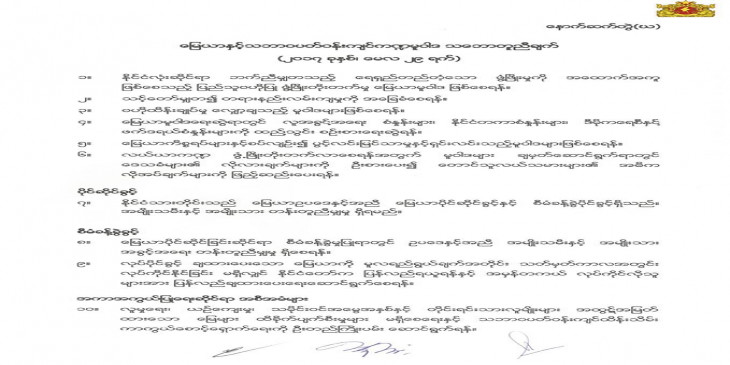 နောက်ဆက်တွဲ(ဃ)
မြေယာနှင့်သဘာဝပတ်ဝန်းကျင်ကဏ္ဍမူဝါဒ သဘောတူညီချက်
(၂၀၁၇ ခုနှစ်၊ မေလ ၂၉ ရက်)
၁။ နိုင်ငံလုံးဆိုင်ရာ ဘက်ညီမျှတသည့် ရေရှည်တည်တံ့သော ဖွံ့ဖြိုးမှုကို အထောက်အကူ
ဖြစ်စေသည့် ပြည်သူဗဟိုပြု ဖွံ့ဖြိုးတိုးတက်မှု မြေယာမူဝါဒ ဖြစ်စေရန်။
၂။ သင့်တော်မျှတ၍ တရားနည်းလမ်းကျမှုကို အခြေခံစေရန်။
၃။ ဗဟိုထိန်းချုပ်မှု လျှော့ချသည့် မူဝါဒများဖြစ်စေရန်။
၄။ မြေယာမူဝါဒရေးဆွဲရာတွင် လူ့အခွင့်အရေး စံနှုန်းများ၊ နိုင်ငံတကာစံနှုန်းများ၊ ဒီမိုကရေစီနှင့်
ဖက်ဒရယ်စံနှုန်းများကို ထည့်သွင်း စဉ်းစားရေးဆွဲရန်။
၅။ မြေယာကိစ္စရပ်များနှင့်စပ်လျဉ်း၍ ပွင့်လင်းမြင်သာမှုနှင့်ရှင်းလင်းသည့်မူဝါဒများဖြစ်စေရန်။
၆။ လယ်ယာကဏ္ဍ ဖွံ့ဖြိုးတိုးတက်လာစေရန်အတွက် မူဝါဒများ ချမှတ်ဆောင်ရွက်ရာတွင်
ဒေသခံများ၏ လိုလားချက်များကို ဦးစားပေး၍ တောင်သူလယ်သမားများ၏ အဓိက
လိုအပ်ချက်များကို ဖြည့်ဆည်းပေးရန်။
ပိုင်ဆိုင်ခွင့်
၇။ နိုင်ငံသားတိုင်းသည် မြေယာဥပဒေနှင့်အညီ မြေယာပိုင်ဆိုင်ခွင့်နှင့် စီမံခန့်ခွဲပိုင်ခွင့်ရှိသည်။
အမျိုးသမီးနှင့် အမျိုးသား တန်းတူညီမျှမှု ရှိရမည်။
စီမံခန့်ခွဲခွင့်
၈။ မြေယာပိုင်ဆိုင်ခြင်းဆိုင်ရာ စီမံခန့်ခွဲမှုပြုရာတွင် ဥပဒေနှင့်အညီ အမျိုးသမီးနှင့် အမျိုးသား
အခွင့်အရေး တန်းတူညီမျှမှု ရှိစေရန်။
၉။ လုပ်ပိုင်ခွင့် ချထားပေးသော မြေယာကို မူလရည်ရွယ်ချက်အတိုင်း သတ်မှတ်ကာလအတွင်း
လုပ်ကိုင်နိုင်ခြင်း မရှိလျှင် နိုင်ငံတော်က ပြန်လည်ရယူရန်နှင့် အမှန်တကယ် လုပ်ကိုင်လိုသူ
များအား ပြန်လည်ချထားပေးရေးဆောင်ရွက်စေရန်။
အကာအကွယ်ပြုရေးဆိုင်ရာ အစီအမံများ
၁၀။ လူမှုရေး၊ ယဉ်ကျေးမှု၊ သမိုင်းဝင်အမွေအနှစ်နှင့် တိုင်းရင်းသားလူမျိုးများ အထွဋ်အမြတ်
ထားသော မြေများ ထိခိုက်ပျက်စီးမှုများ မရှိစေရေးနှင့် သဘာဝပတ်ဝန်းကျင်ထိန်းသိမ်း
ကာကွယ်စောင့်ရှောက်ရေးကို ဦးတည်ကြိုးပမ်း ဆောင်ရွက်ရန်။